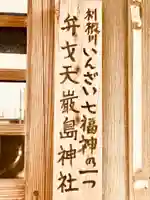 利根川いんざい七福神の一つ
弁戈天厳島神社